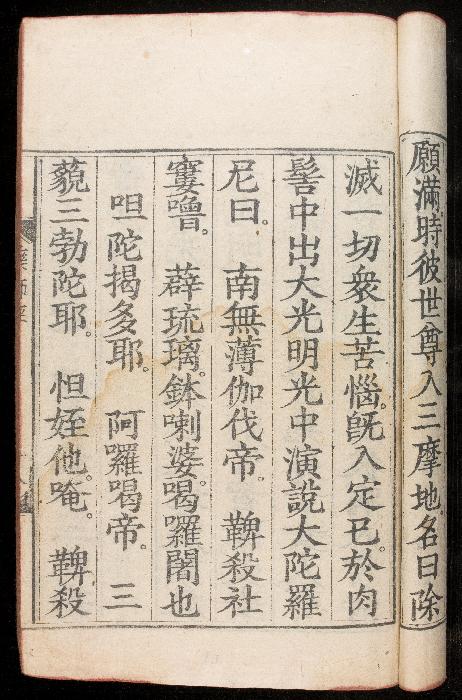 願滿時彼世尊入三摩地。名曰除
滅一切衆生苦惱。旣入定已。於肉
髻中出大光明光中演說大陀羅
尼曰。　南無薄伽伐帝　鞞殺社
窶嚕。　薜琉璃。鉢喇婆。喝囉闍也
呾陀揭多耶。　阿囉喝帝。　三
藐三勃陀耶。　怛姪他。唵。　鞞殺
藥師經